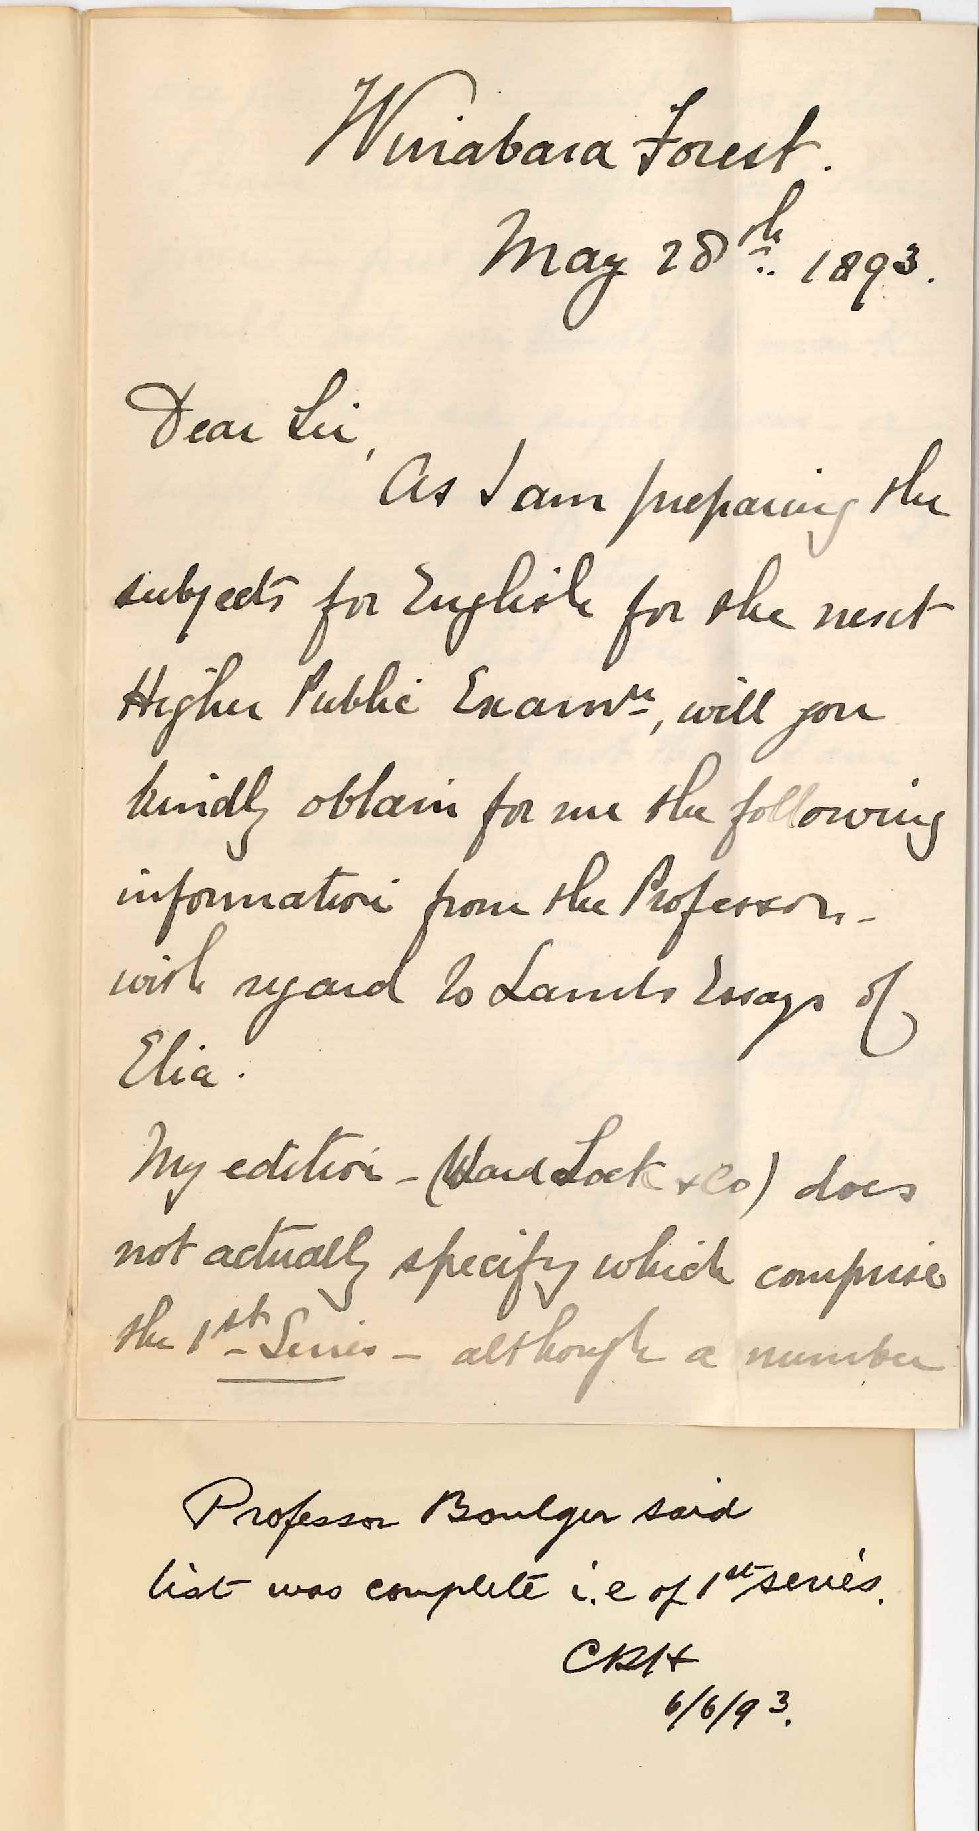 Wirrabara Forest.
May 28th. 1893.
Dear Sir,
As I am preparing the
subjects for English for the next
Higher Public Examn, will you
kindly obtain for me the following
information from the Professor, -
with regard to Lamb's Essays of
Elia.
My edition - (Ward Lock & Co) does
not actually specify which comprise
the 1st Series - although a number
Professor Boulger said
list was complete i.e of 1st series.
CRH
6/6/93.